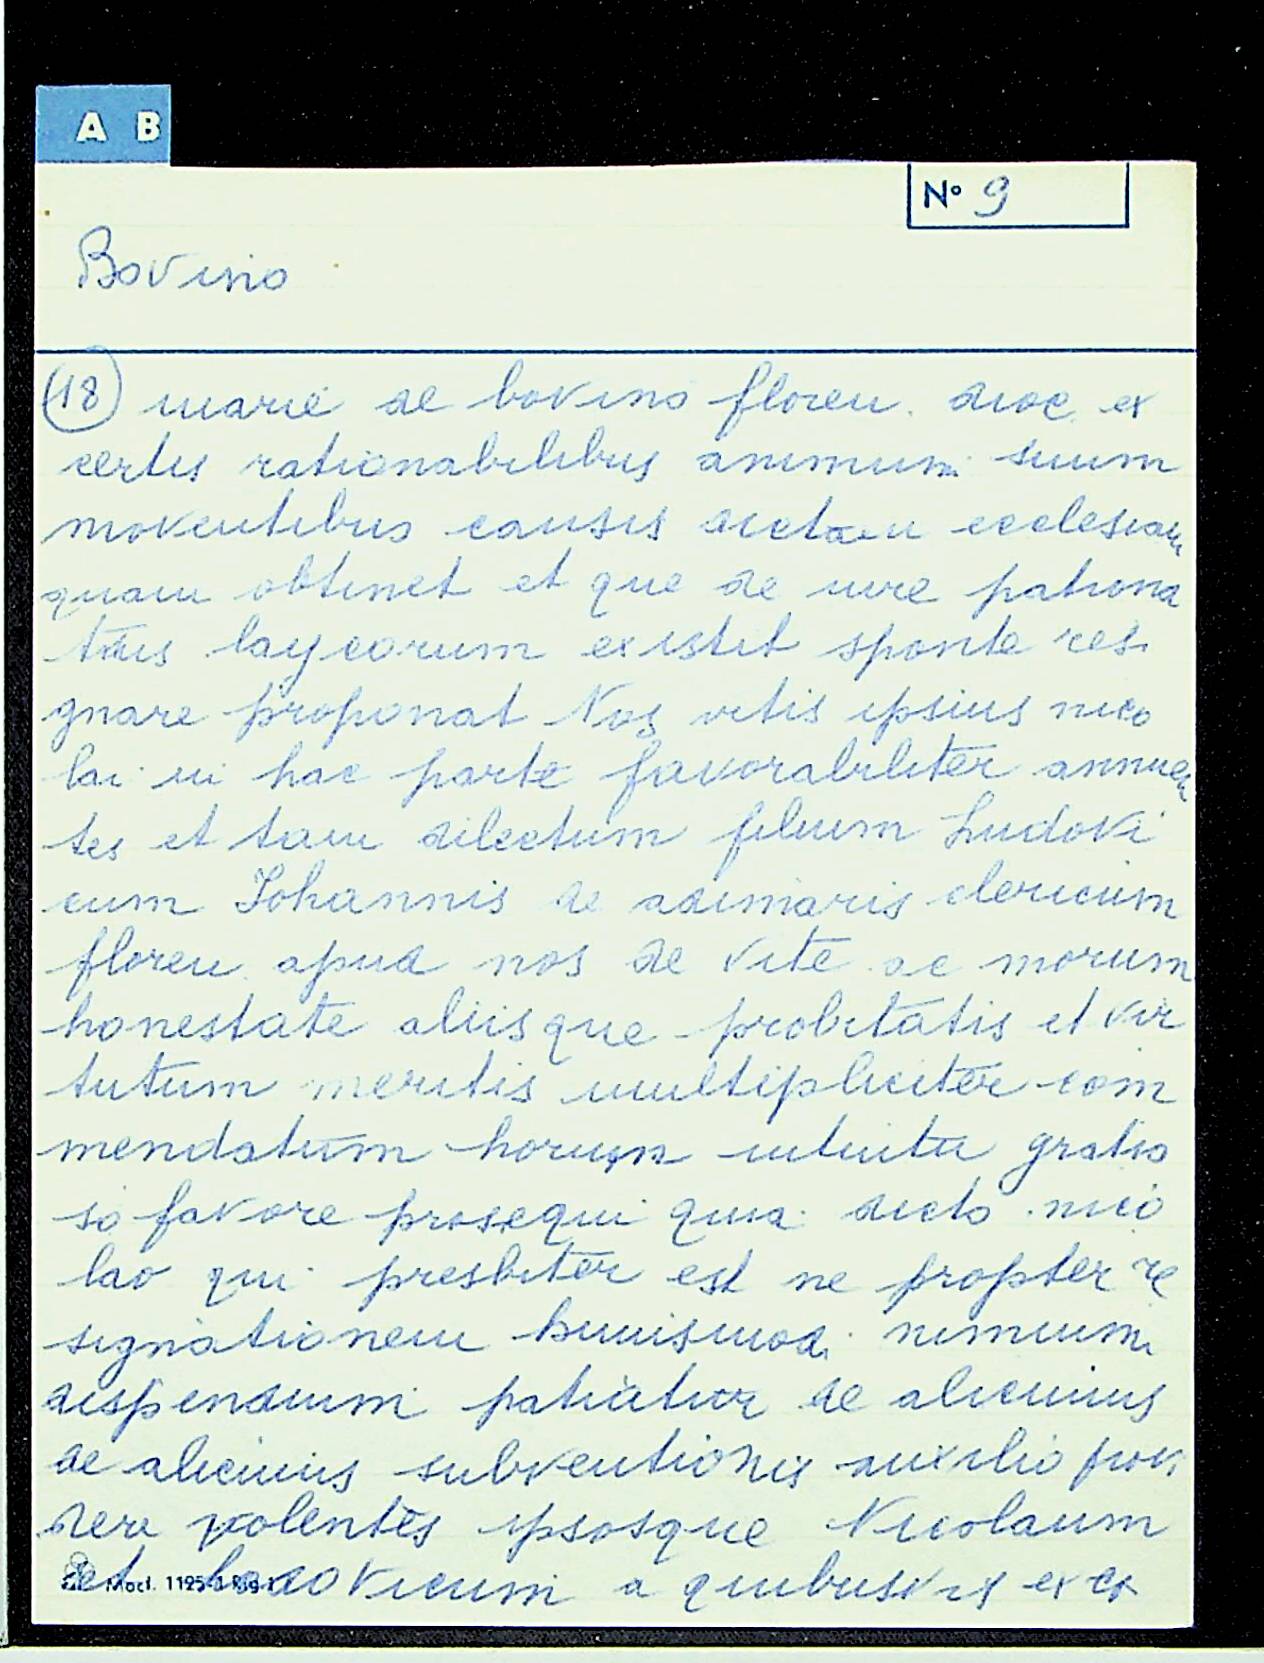 A B
N° 9
Bovino
(18) marie de bovino floren. dioc. ex
certis rationabilibus animum suum
moventibus causis dictam ecclesiam
quam obtinet et que de iure patrona
tus laycorum existit sponte resi
gnare proponat Nos votis ipsius nico
lai in hac parte favorabiliter annuen
tes et tam dilectum filium Ludovi
cum Johannis de adimaris clericum
floren. apud nos de vite ac morum
honestate aliisque probitatis et vir
tutum meritis multipliciter com
mendatum horum intuitu gratio
so favore prosequi quia dicto nico
lao qui presbiter est ne propter re
signationem huiusmod. nimium
dispendium patiatur de alicuius
de alicuius subventionis auxilio provi
dere volentes ipsosque Nicolaum
et Lodovicum a quibusvis exco
Mod.